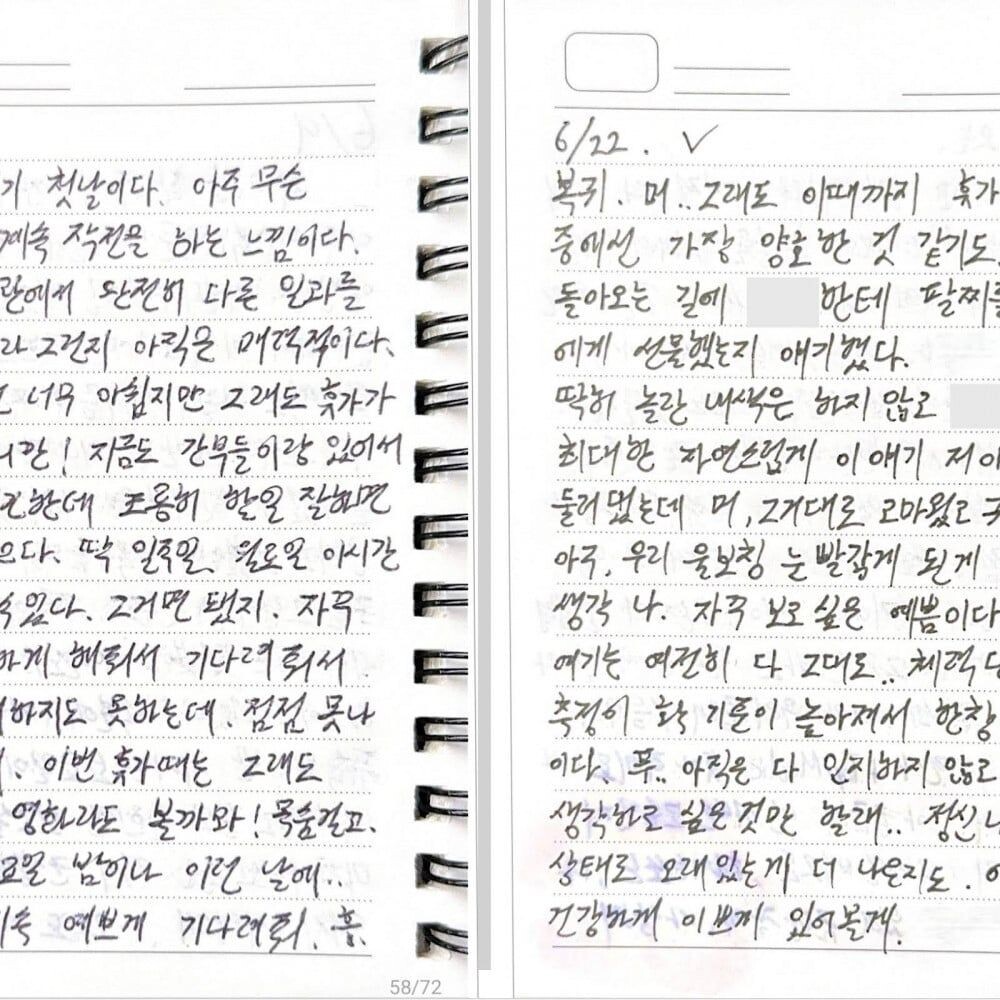 가 첫날이다. 아주 무슨
계속 작전을 하는 느낌이다.
관에서 완전히 다른 일과를
라 그런지 아직은 매력적이다.
너무 아쉽지만 그래도 휴가가
니깐! 지금도 간부들이랑 있어서
한데 조용히 할일 잘하면
다. 딱 일주일, 월요일 이시간
있다. 그거면 됐지. 자꾸
하게 해줘서 기다려줘서
하지도 못하는데. 점점 못나
이번 휴가때는 그래도
영화라도 볼까와! 목숨걸고.
요일 밤이나 이런 날에..
계속 예쁘게 기다려줘. 흠.
58/72
6/22. ✓
복귀. 머.. 그래도 이때까지 휴가
중에선 가장 양호한 것 같기도.
돌아오는 길에 한테 팔찌를
에게 선물했는지 얘기했다.
딱히 놀란 내색은 하지 않고
최대한 자연스럽게 이 얘기 저 이
둘러댔는데 머, 그거대로 고마웠고
아주, 우리 울보칭 눈 빨갛게 된게
생각 나. 자꾸 보고 싶은 예쁨이다
여기는 여전히 다 그대로.. 체력
측정이 확 기준이 높아져서 한창
이다. 푸.. 아직은 다 인지하지 않고
생각하고 싶은것만 할래.. 정신
상태로 오래있는게 더 나은지도.
건강하게 이쁘게 있어볼게.